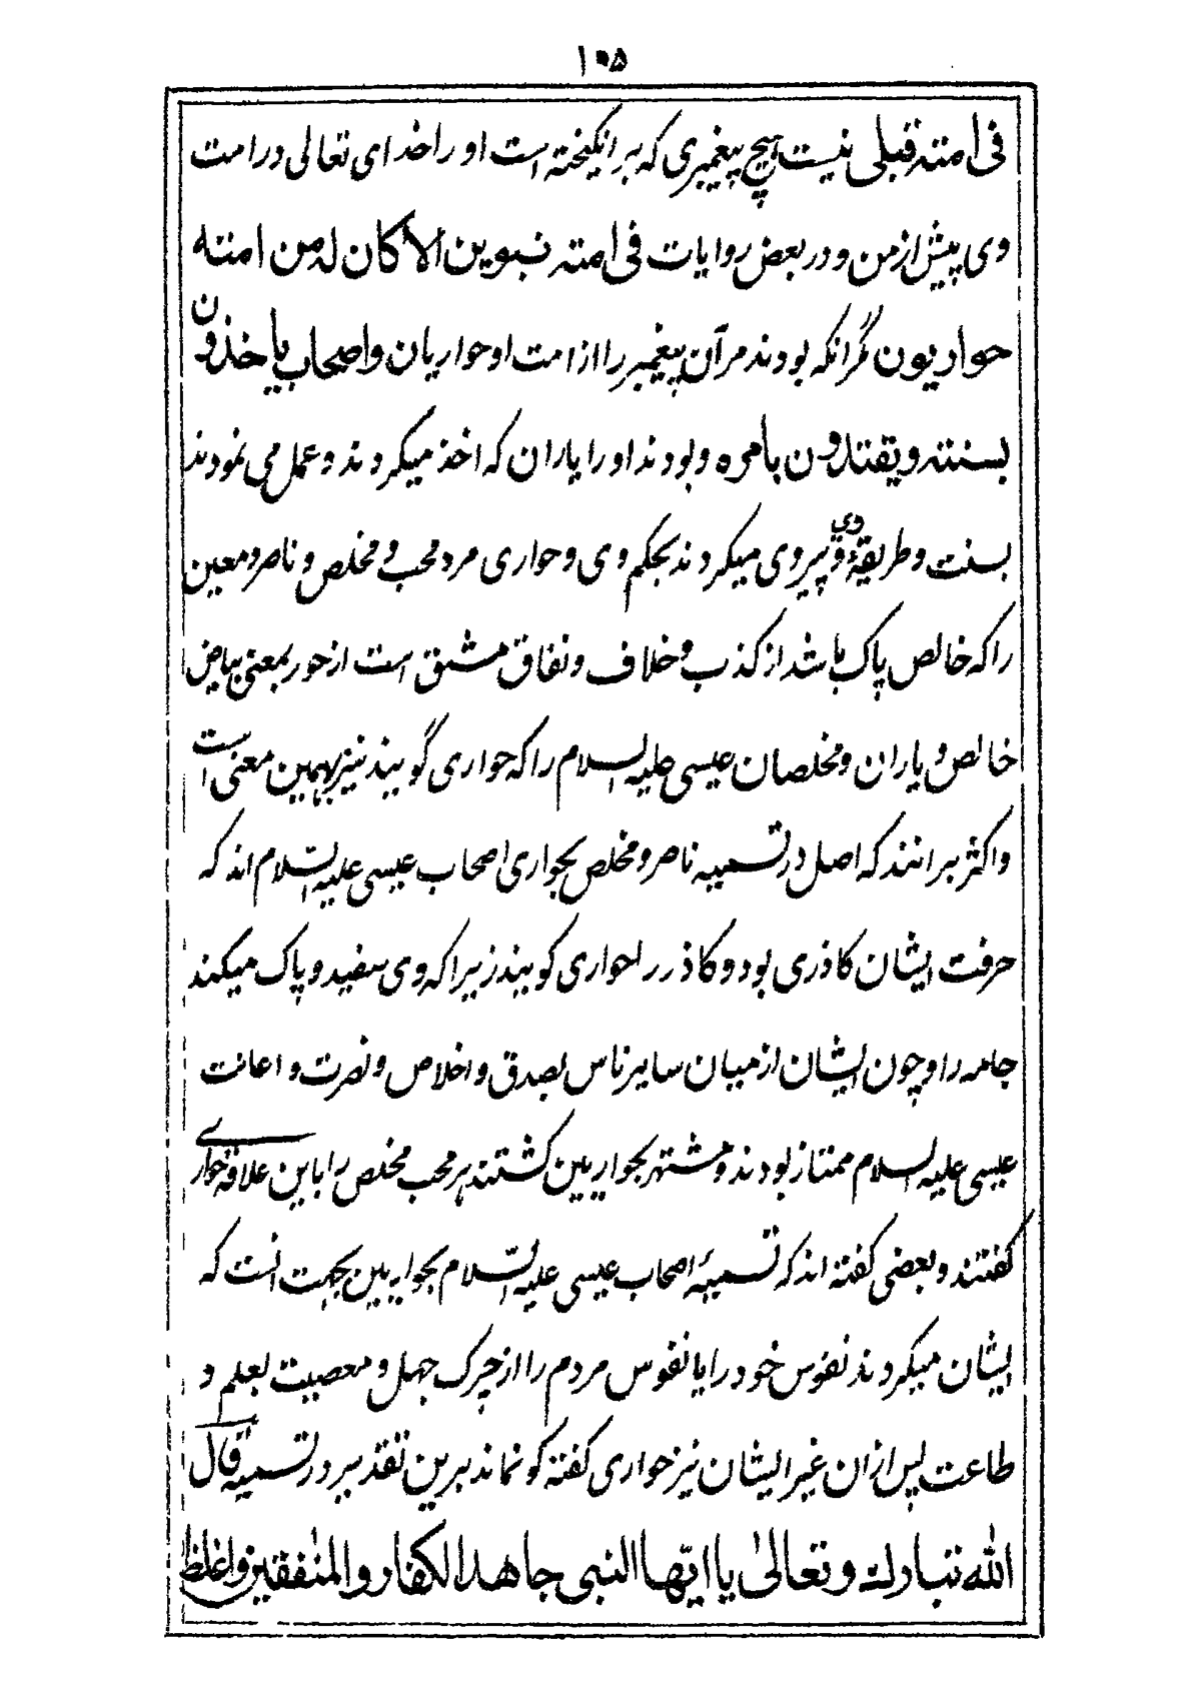 ۱۰۵
فی امته قبلی نیست هیچ پیغمبری که برانگیخته است او را خدای تعالی در امت
وی پیش از من و در بعض روایات فی امته نبوین الا کان له من امته
حواریون مگر آنکه بودند مر آن پیغمبر را از امت او حواریان و اصحاب یاخذون
بسنته و یقتدون بامره و بودند او را یاران که اخذ میکردند و عمل می نمودند
بسنت و طریقهٔ وی و پیروی میکردند بحکم وی و حواری مرد محب و مخلص و ناصر و معین
را که خالص پاک باشد از کذب و خلاف و نفاق مشتق است از حور بمعنی بیاض
خالص و یاران و مخلصان عیسی علیه السلام را که حواری گویند نیز بهمین معنی است
و اکثر برانند که اصل در تسمیه ناصر و مخلص بحواری اصحاب عیسی علیه السّلام اند که
حرفت ایشان کاذری بود و کاذر را حواری کویند زیرا که وی سفید و پاک میکند
جامه را و چون ایشان از میان سایر ناس بصدق و اخلاص و نصرت و اعانت
عیسی علیه السلام ممتاز بودند و مشتهر بحواریین کشتند هر محب مخلص را باین علاقه حواری
کفتند و بعضی کفته اند که تسمیهٔ اصحاب عیسی علیه السّلام بحواریین بجهت انست که
ایشان میکردند نفوس خود را یا نفوس مردم را از چرک جهل و معصیت بعلم و
طاعت پس ازان غیر ایشان نیز حواری کفته کو نماند برین تقدیر در تسمیه قال
الله تبارك وتعالیٰ یا ایّها النبی جاهد الکفار والمنٰفقین واغلظ